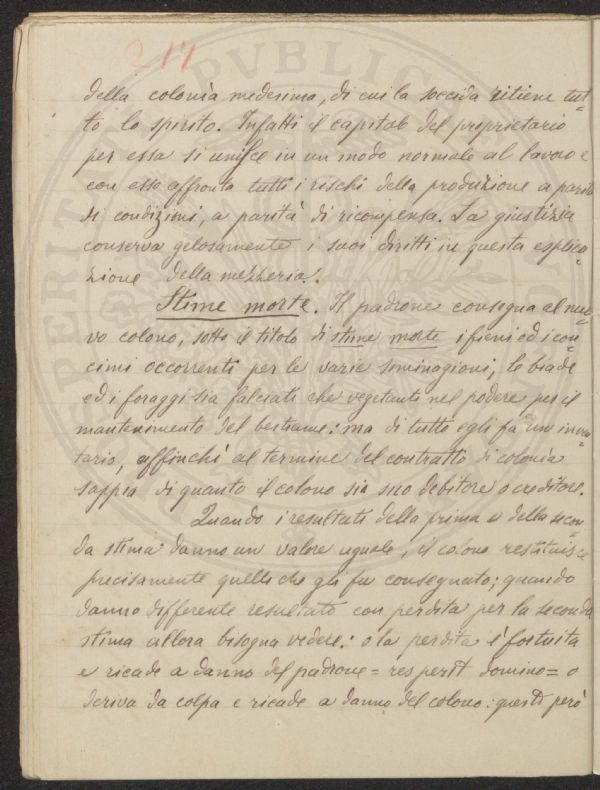 217
della colonia medesima, di cui la soccida ritiene tut=
to lo spirito. Infatti il capitale del proprietario
per essa si unisce in un modo normale al lavoro e
con esso affronta tutti i rischi della produzione a parità
di condizioni, a parità di ricompensa. La giustizia
conserva gelosamente i suoi diritti in questa esplica=
zione della mezzeria.
Stime morte. Il padrone consegna al nuo=
vo colono, sotto il titolo di stime morte i fieni ed i con=
cimi occorrenti per le varie seminagioni, le biade
ed i foraggi sia falciati che vegetanti nel podere per il
mantenimento del bestiame: ma di tutto egli fa un inven=
tario, affinchè al termine del contratto di colonia
sappia di quanto il colono sia suo debitore o creditore.
Quando i resultati della prima e della secon=
da stima danno un valore uguale, il colono restituisce
precisamente quello che gli fu consegnato; quando
danno differente resultato con perdita per la seconda
stima allora bisogna vedere: o la perdita è fortuita
e ricade a danno del padrone = res perit domino = o
deriva da colpa e ricade a danno del colono: questi però
PVBLICA